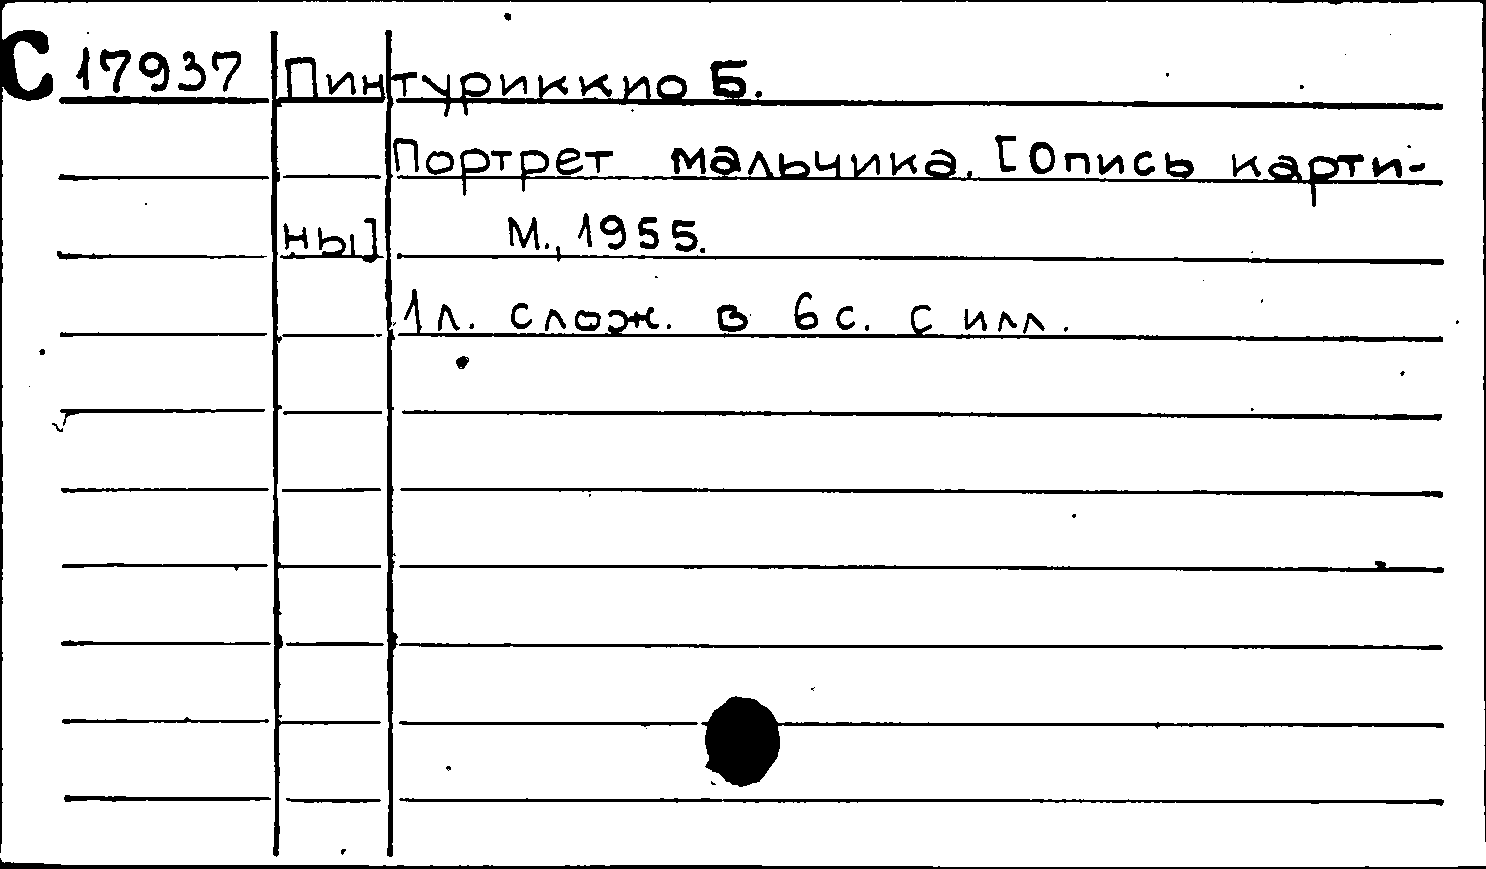 С 17937 Пинтуриккио Б.
Портрет мальчика. [Опись карти-
ны] М., 1955.
1 л. слож. в 6 с. с илл.